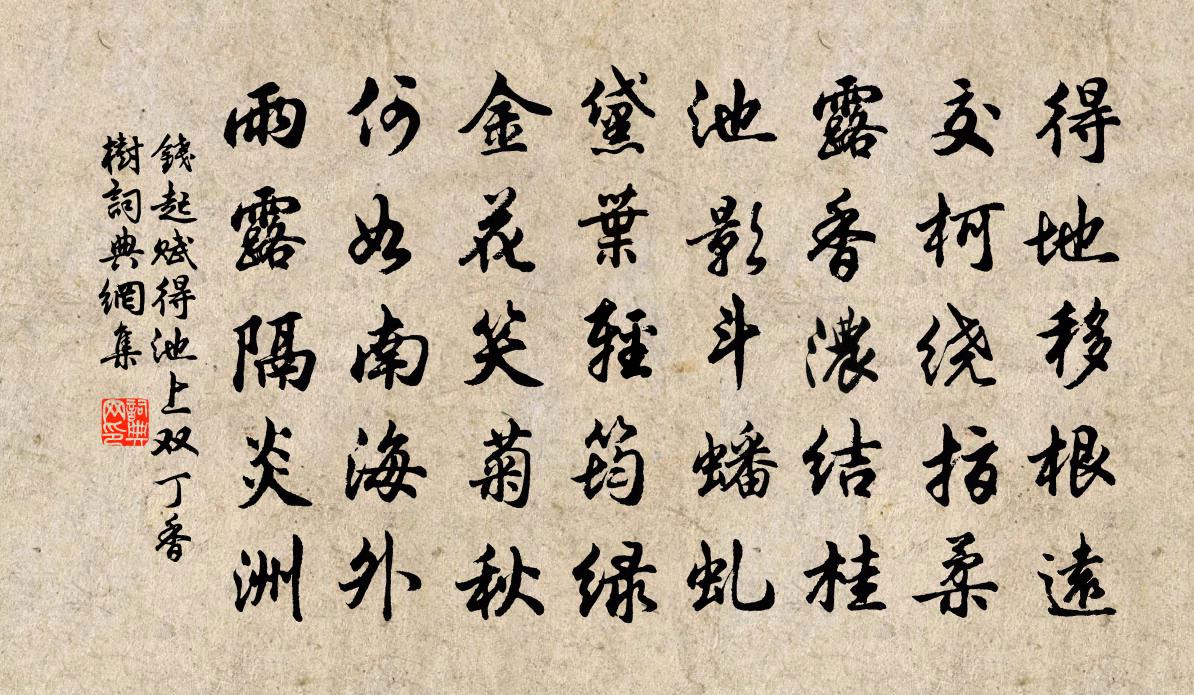 得地移根遠
交柯绕指柔
露香濃结桂
池影斗蟠虬
黛葉輕筠绿
金花笑菊秋
何如南海外
雨露隔炎洲
錢起賦得池上双丁香
樹詞典網集
詞典网印